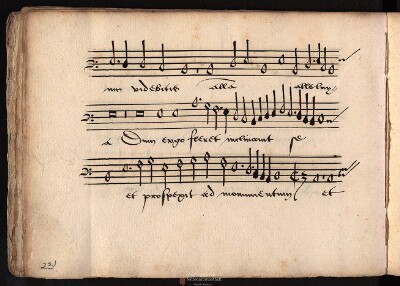 um videbitis alla alleluy-
a Dum ergo fleret inclinavit se
et prospexit ad monumentum et
23